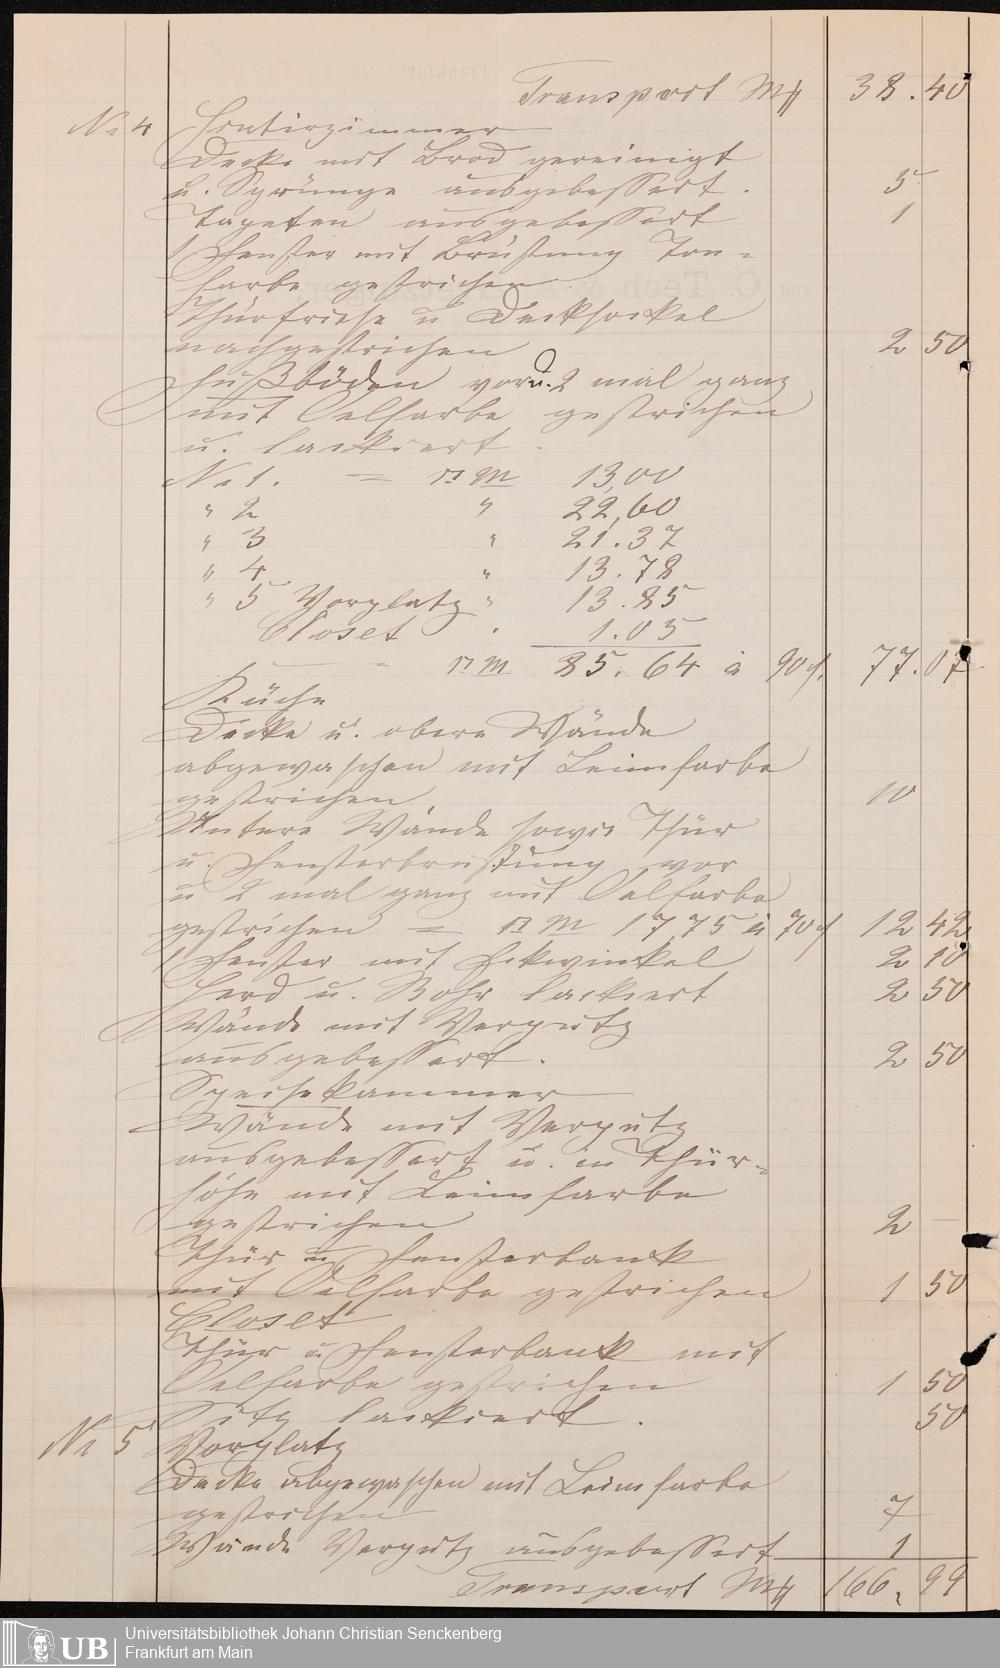 Transport M 38.40
No 4
Decke mit Brod gereinigt
u. Sprünge ausgebessert. 5
Tapeten ausgebessert 1
1 Fenster mit Brüstung Ton-
farbe gestrichen
Thürfriese u Decksockel
nachgestrichen 2 50
Fußböden vor u. 2 mal ganz
mit Oelfarbe gestrichen
u. lackiert.
No 1. = □ M 13,00
" 2 " 22,60
" 3 " 21.37
" 4 " 13.78
" 5 Vorplatz " 13.85
Closet " 1.05
□ M 85.64 à 90 ₰. 77.07
Küche
Decke u. obere Wände
abgewaschen mit Leimfarbe
gestrichen 10
Untere Wände sowie Thür
u. Fensterbrüstung vor
u 2 mal ganz mit Oelfarbe
gestrichen = □ M 17 75 à 70 ₰ 12 42
1 Fenster mit 2 10
Herd u. Rohr lackiert 2 50
Wände mit Verputz
ausgebessert. 2 50
Speisekammer
Wände mit Verputz
ausgebessert u. in Thür-
höhe mit Leimfarbe
gestrichen 2 —
Thür u. Fensterbank
mit Oelfarbe gestrichen 1 50
Closet
Thür u Fensterbank mit
Oelfarbe gestrichen 1 50
Sitz lackiert. 50
No 5 Vorplatz
Decke abgewaschen mit Leimfarbe
gestrichen 7
Wände Verputz ausgebessert 1
Transport M 166.99
UB Universitätsbibliothek Johann Christian Senckenberg
Frankfurt am Main